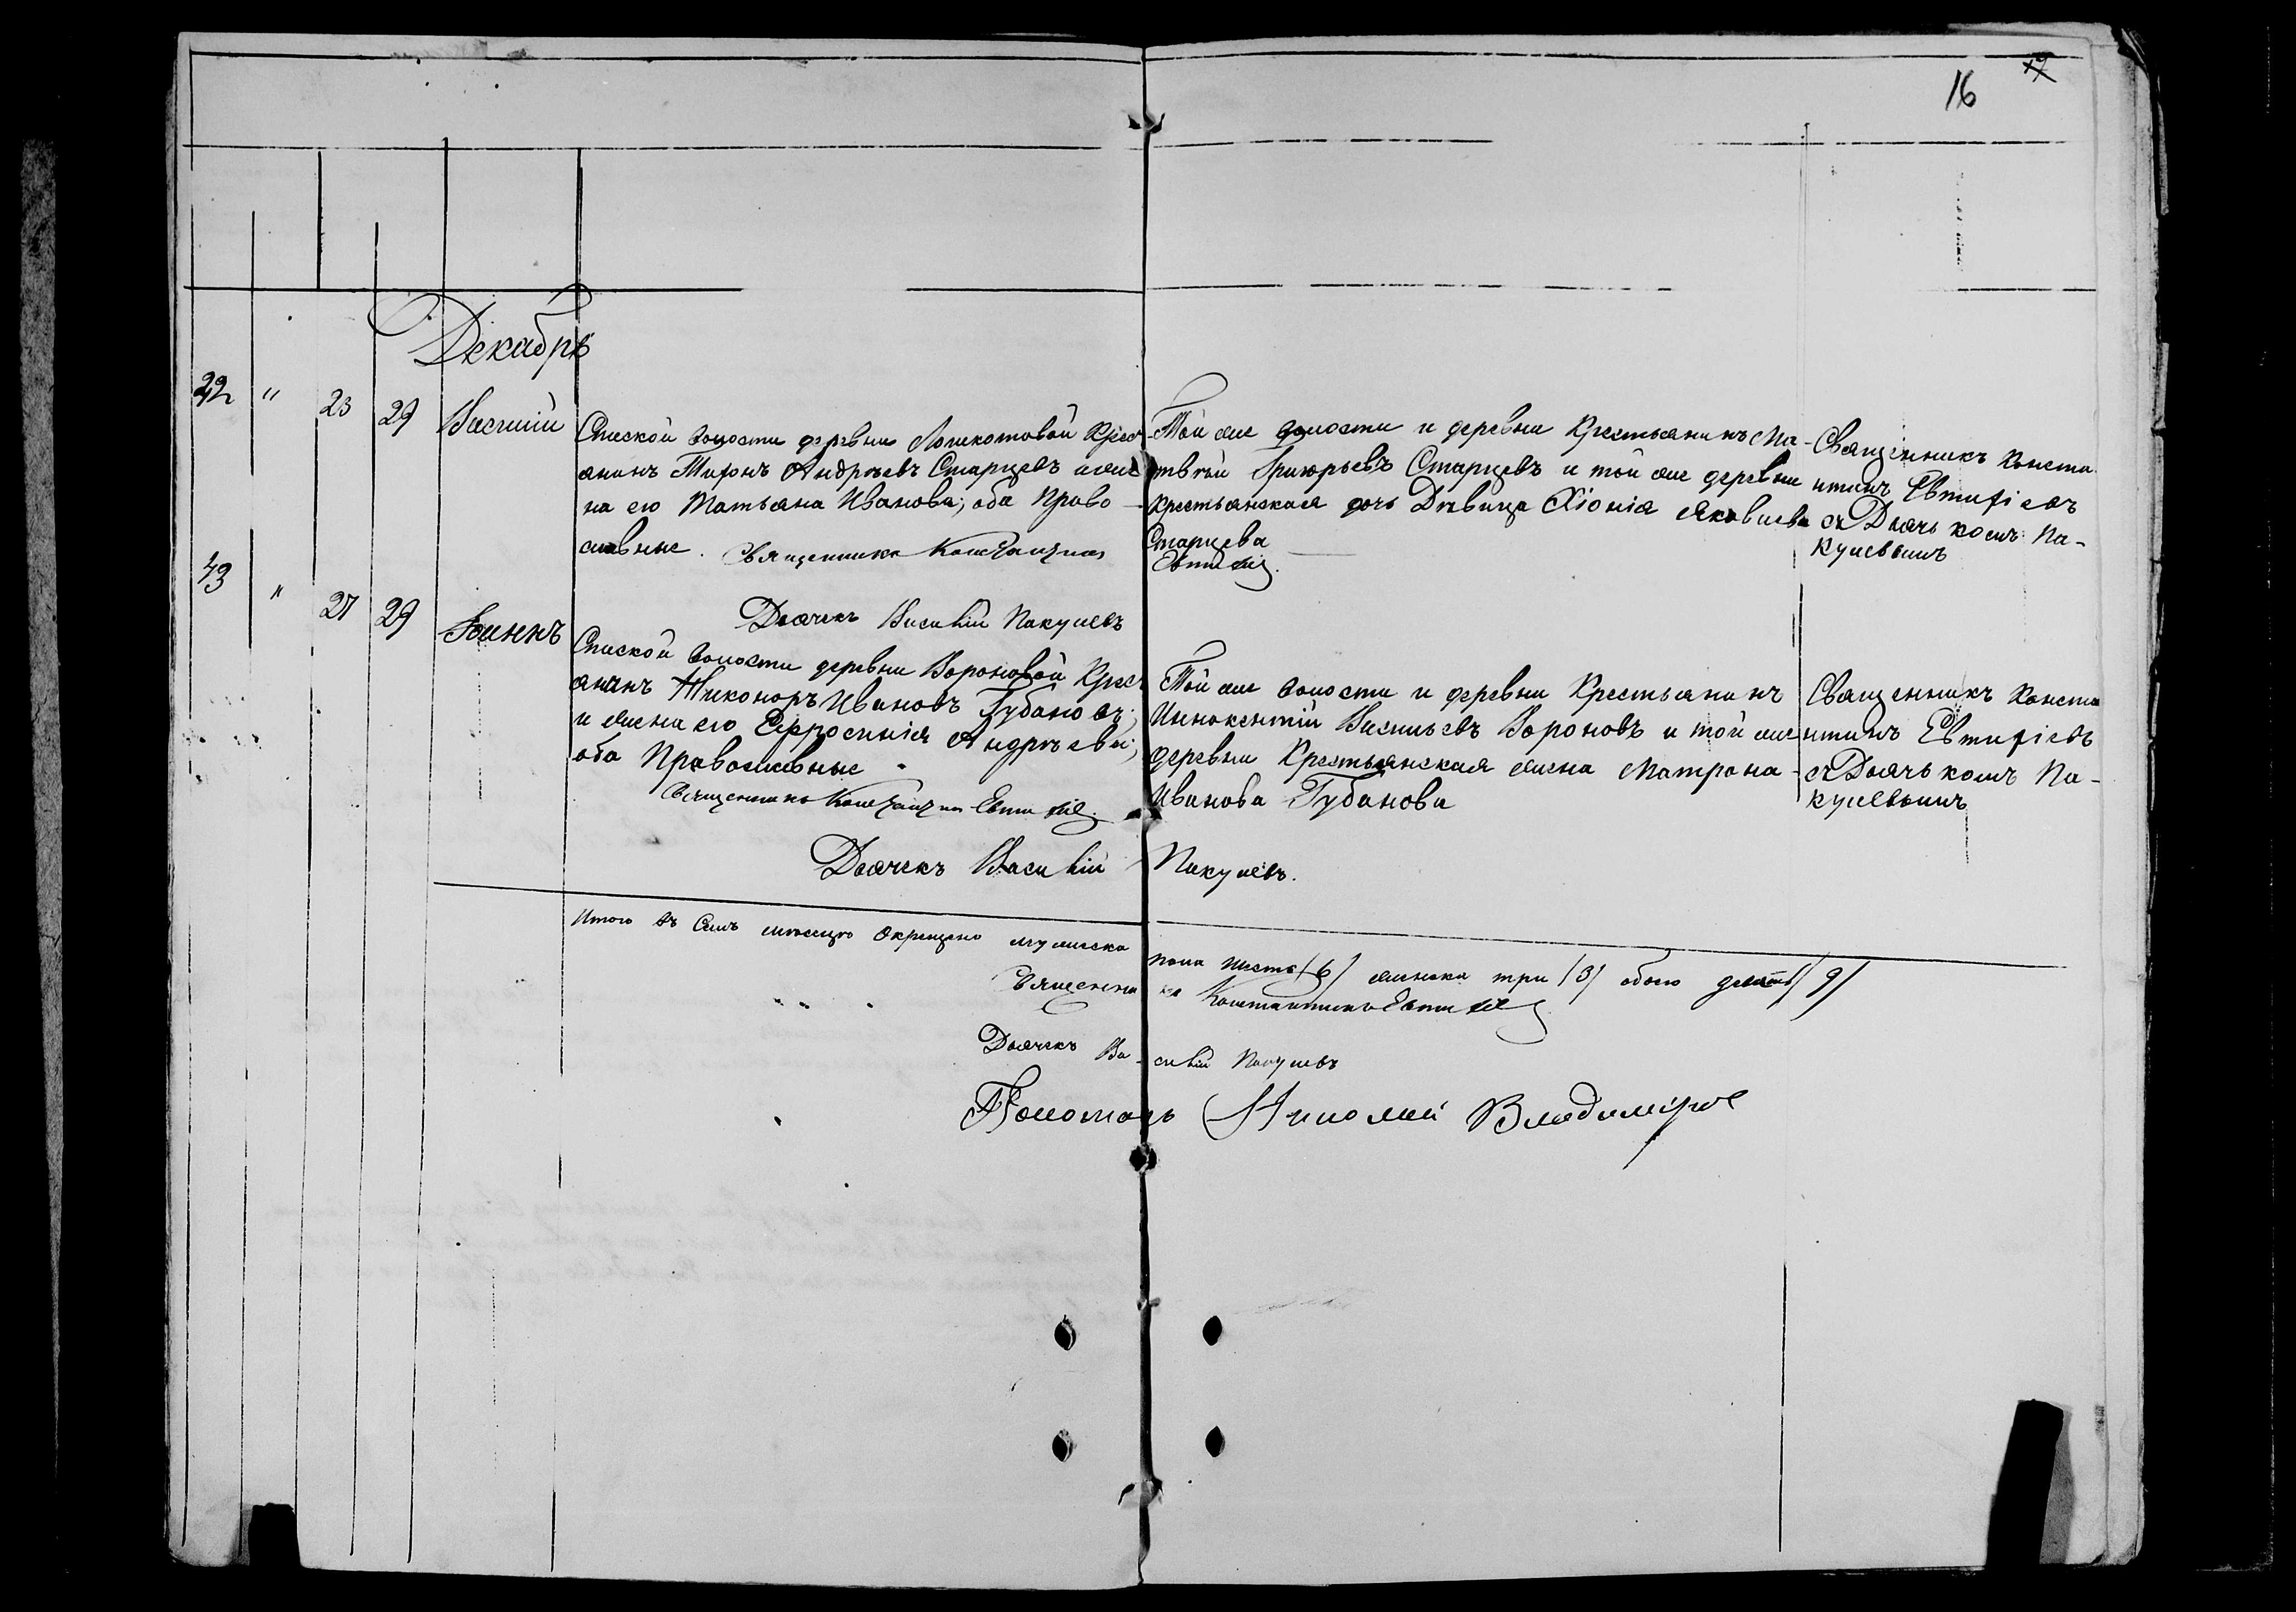 16
Декабрь
42 " 23 29 Василій
Спаской волости деревни Ложкотовой Крест
янинъ Тифонъ Андрѣевъ Старцевъ и же
на его Татьяна Иванова; оба Право
славные. Священникъ Константинъ
Дьячекъ Василій Пакулевъ
Той же волости и деревни Крестьянинъ Ма-
твѣй Григорьевъ Старцевъ и той же деревни
крестьянская дочь Дѣвица Хіонія Яковлева
Старцева
Евтихіе.
Священникъ Конста
нтинъ Евтифіевъ
съ Дьячькомъ Па-
кулевымъ
43 " 27 29 Іоаннъ
Спаской волости деревни Вороновой Крест
янинъ Никоноръ Ивановъ Губановъ
и жена его Ефросинія Андрѣева;
оба Православные.
Священникъ Константинъ Евтихіе.
Дьячекъ Василій Пакулевъ.
Той же волости и деревни Крестьянинъ
Иннокентій Васильевъ Вороновъ и той же
деревни Крестьянская жена Матрона
Иванова Губанова
Священникъ Конста
нтинъ Евтифіевъ
съ Дьячькомъ Па-
кулевымъ
Итого въ Семъ мѣсяцѣ Окрещено мужеска пола шесть /6/ женска три /3/ обоего девять /9/
Священникъ Константинъ Евтихіе
Дьячекъ Василій Пакулевъ
Пономарь Николай Владиміров